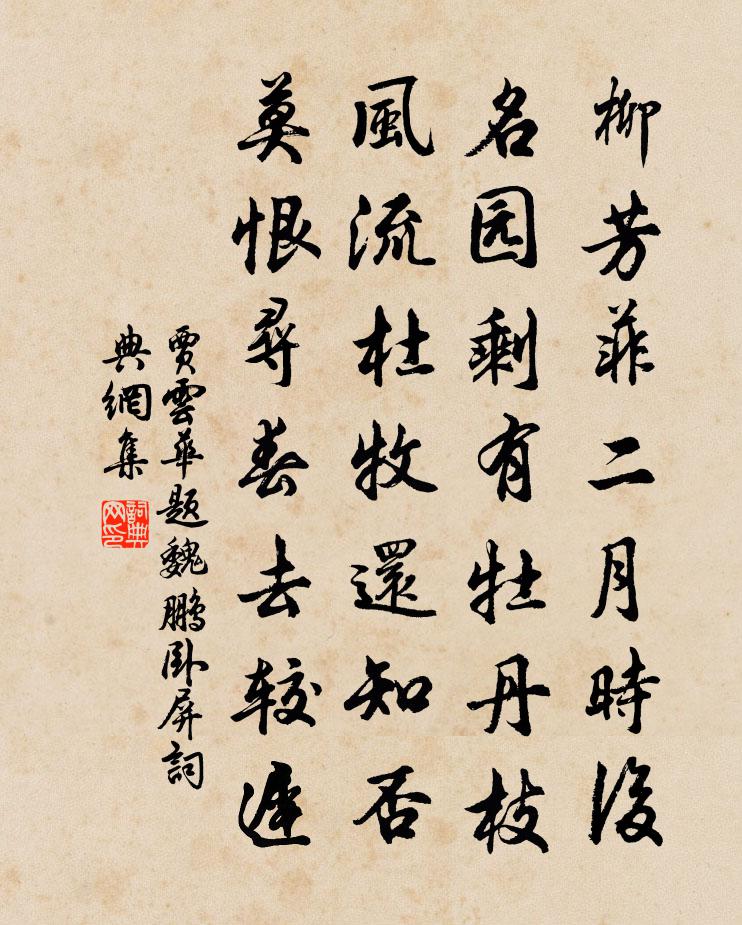 柳芳菲二月時後
名园剩有牡丹枝
風流杜牧還知否
莫恨尋春去较遲
賈雲華题魏鹏卧屏詞
典網集
詞典网印